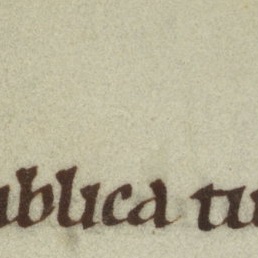 ublica tu